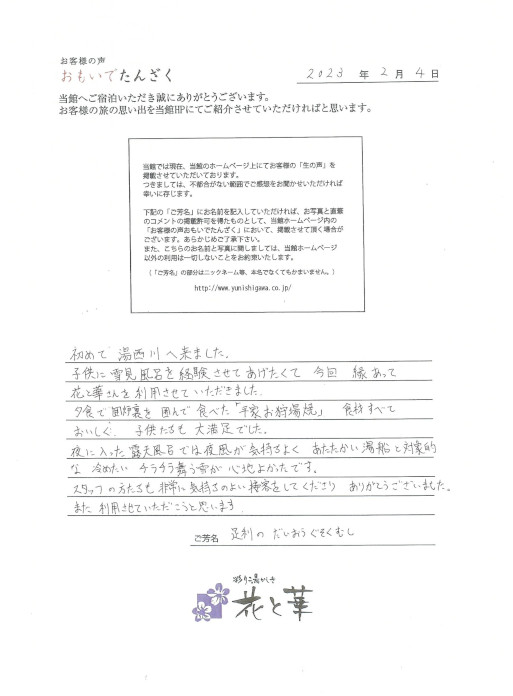 お客様の声
おもいでたんざく
2023 年 2 月 4 日
当館へご宿泊いただき誠にありがとうございます。
お客様の旅の思い出を当館HPにてご紹介させていただければと思います。
当館では現在、当館のホームページ上にてお客様の「生の声」を
掲載させていただいております。
つきましては、不都合がない範囲でご感想をお聞かせいただければ
幸いに存じます。
下記の「ご芳名」にお名前を記入していただければ、お写真と直筆
のコメントの掲載許可を得たものとして、当館ホームページ内の
「お客様の声おもいでたんざく」において、掲載させて頂く場合が
ございます。あらかじめご了承下さい。
また、こちらのお名前と写真に関しましては、当館ホームページ
以外の利用は一切しないことをお約束いたします。
(「ご芳名」の部分はニックネーム等、本名でなくてもかまいません。)
http://www.yunishigawa.co.jp/
初めて 湯西川へ来ました。
子供に雪見風呂を経験させてあげたくて 今回 縁あって
花と華さんを利用させていただきました。
夕食で囲炉裏を囲んで食べた「平家お狩場焼」 食材すべて
おいしく、子供たちも 大満足でした。
夜に入った露天風呂では夜風が気持ちよく あたたかい湯船と対象的
な 冷めたい チラチラ舞う雪が 心地よかったです。
スタッフの方たちも 非常に気持ちのよい接客をしてくださり ありがとうございました。
また 利用させていただこうと思います
ご芳名 足利の だいおうぐそくむし
花と華